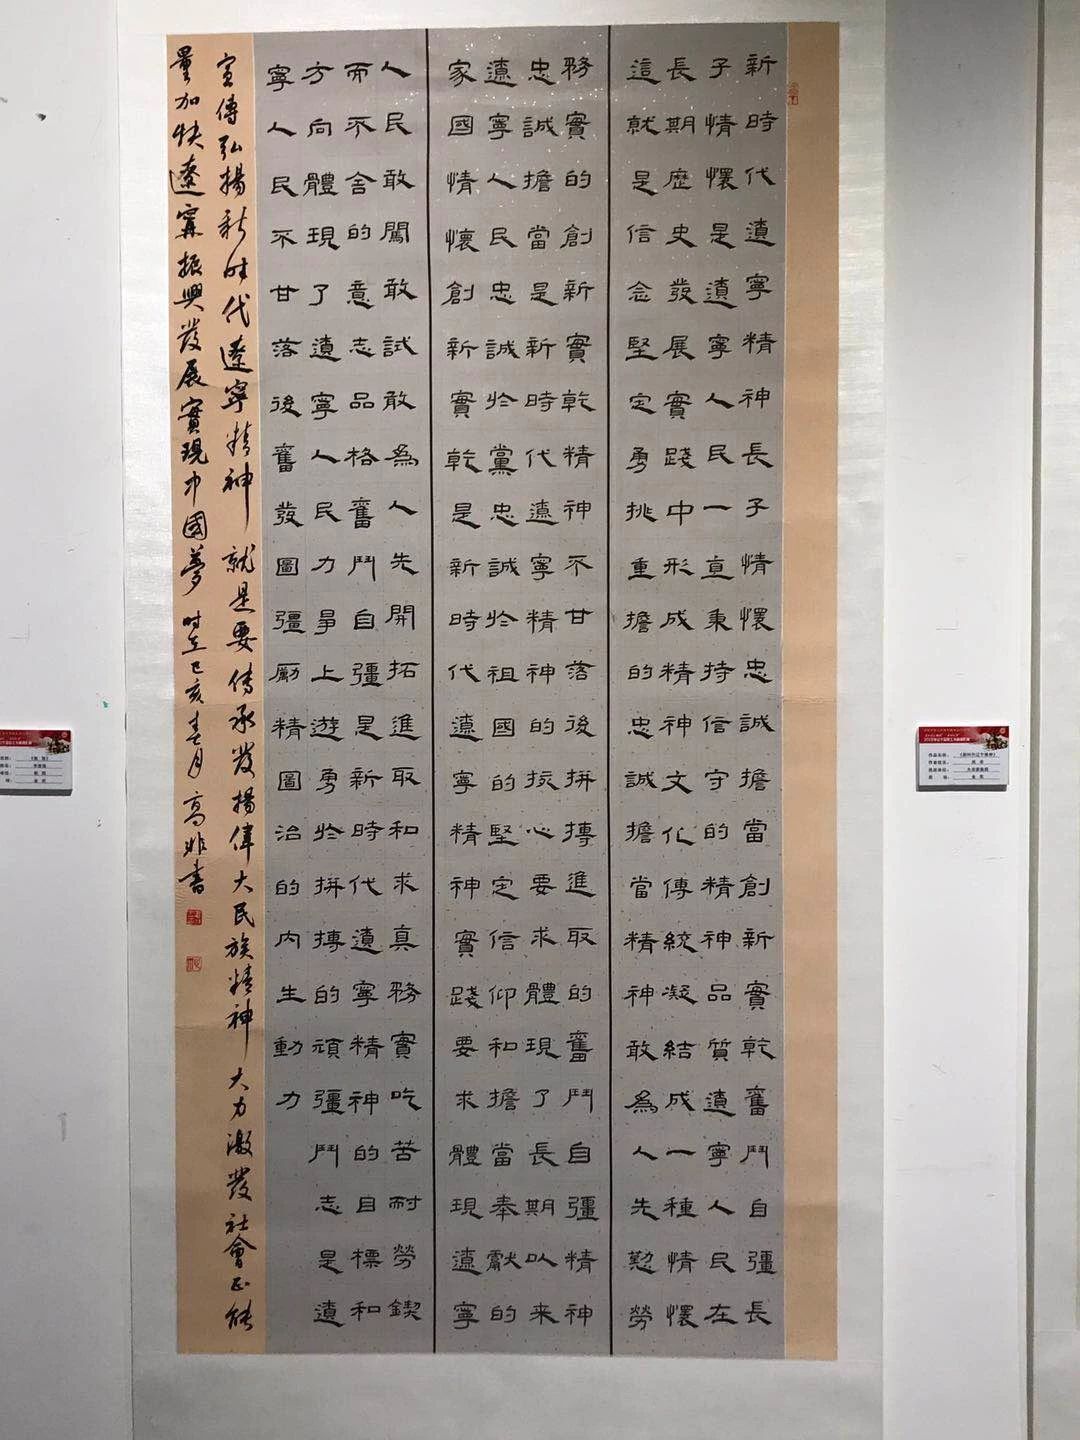 新時代遼寧精神長子情懷忠誠擔當創新實乾奮鬥自彊長
子情懷是遼寧人民一直秉持信守的精神品質遼寧人民在
長期歷史發展實踐中形成精神文化傳統凝結成一種情懷
這就是信念堅定勇挑重擔的忠誠擔當精神敢為人先勤勞
務實的創新實乾精神不甘落後拼搏進取的奮鬥自彊精神
忠誠擔當是新時代遼寧精神的核心要求體現了長期以来
遼寧人民忠誠於黨忠誠於祖國的堅定信仰和擔當奉獻的
家國情懷創新實乾是新時代遼寧精神實踐要求體現遼寧
人民敢闖敢試敢為人先開拓進取和求真務實吃苦耐勞鍥
而不舍的意志品格奮鬥自彊是新時代遼寧精神的目標和
方向體現了遼寧人民力爭上遊勇於拼搏的頑彊鬥志是遼
寧人民不甘落後奮發圖彊厲精圖治的内生動力
宣傳弘揚新时代遼寧精神就是要传承發揚偉大民族精神大力激發社會正能
量加快遼寧振興發展實現中國夢时在己亥春月高非書
作品名称：《新时代辽宁精神》